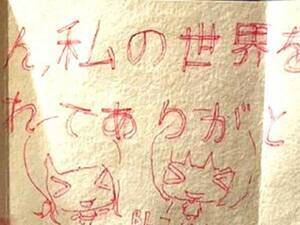 ん,私の世界を
れてありがと